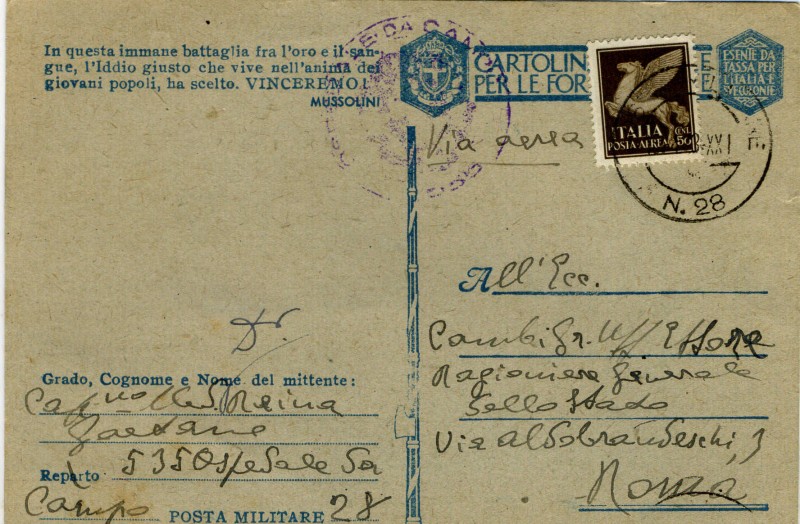 In questa immane battaglia fra l'oro e il san-
gue, l'Iddio giusto che vive nell'anima dei
giovani popoli, ha scelto. VINCEREMO!
MUSSOLINI
CARTOLIN
PER LE FOR
ESENTE DA
TASSA PER
L'ITALIA E
SUE COLONIE
ITALIA
POSTA-AEREA
CENT. 50
N. 28
Via aerea
All'Ecc.
Cambi Gr. Uff Ettore
Ragioniere Generale
dello Stato
Via Aldobrandeschi, 3
Roma
Dr.
Grado, Cognome e Nome del mittente:
Cap.no Med. Reina
Gaetano
Reparto 535 Ospedale da
Campo POSTA MILITARE 28